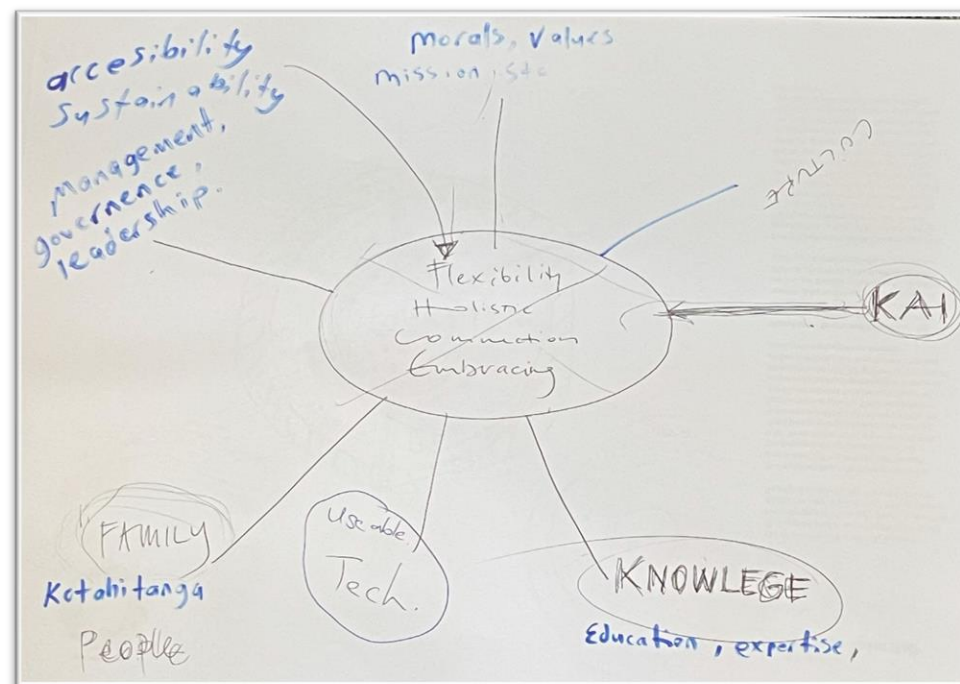 accesibility
Sustainability
Management,
governence,
leadership.
morals, values
mission, etc
CULTURE
Flexibility
Holistic
Connection
Embracing
KAI
FAMILY
Kotahitanga
People
Useable
Tech.
KNOWLEGE
Education, expertise,